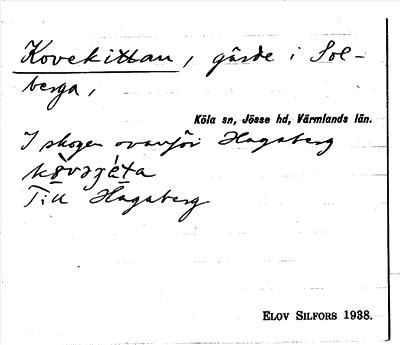 Kovekittan, gärde i Sol-
berga,
Köla sn, Jösse hd, Värmlands län.
I skogen ovanför Hagaberg
Till Hagaberg
ELOV SILFORS 1938.